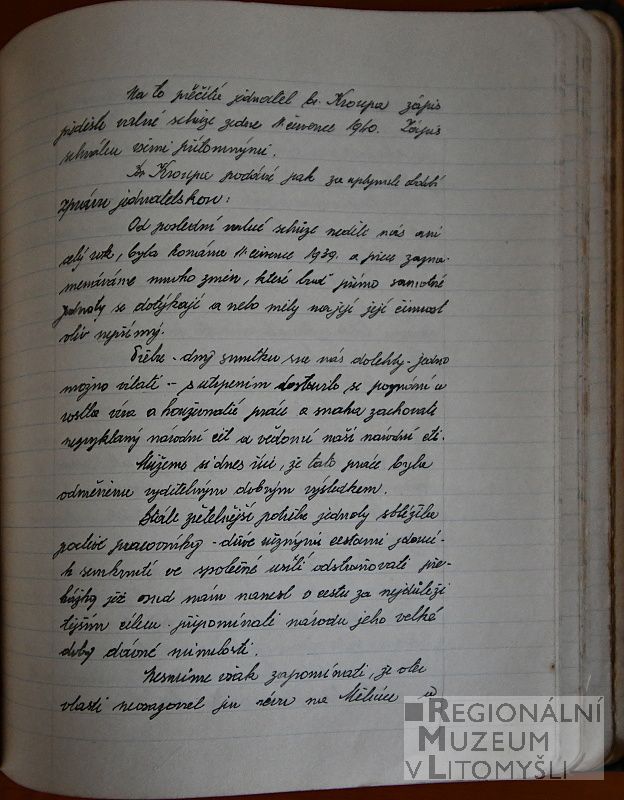 Na to přečítá jednatel br. Kroupa zápis
předešlé valné schůze ze dne 11 července 1940. Zápis
schválen všemi přítomnými.
Br. Kroupa podává pak za uplynulé období
zprávu jednatelskou:
Od poslední valné schůze nedělí nás ani
celý rok, byla konána 11 července 1939. a přece zazna-
menáváme mnoho změn, které buď přímo samotné
jednoty se dotýkají a nebo měly na její činnost
vliv nepřímý.
- dny smutku na nás dolehly - jedno
možno vítati - s utrpením dostavilo se poznání a
rostla víra a houževnatá práce a snaha zachovati
národní cit a vědomí naší národní cti.
Můžeme si dnes říci, že tato práce byla
odměněna vyditelným dobrým výsledkem.
Stále zřetelnější potřeba jednoty sblížila
poctivé pracovníky - dříve různými cestami jdoucí -
k semknutí ve společné úsilí odstraňovati pře-
kážky jež osud nám nanesl v cestu za nejdůleži
tějším cílem - připomínati národu jeho velké
doby dávné minulosti.
Nesmíme však zapomínati, že otec
vlasti neorganoval jen révu na Mělníce a
REGIONÁLNÍ
MUZEUM
V LITOMYŠLI